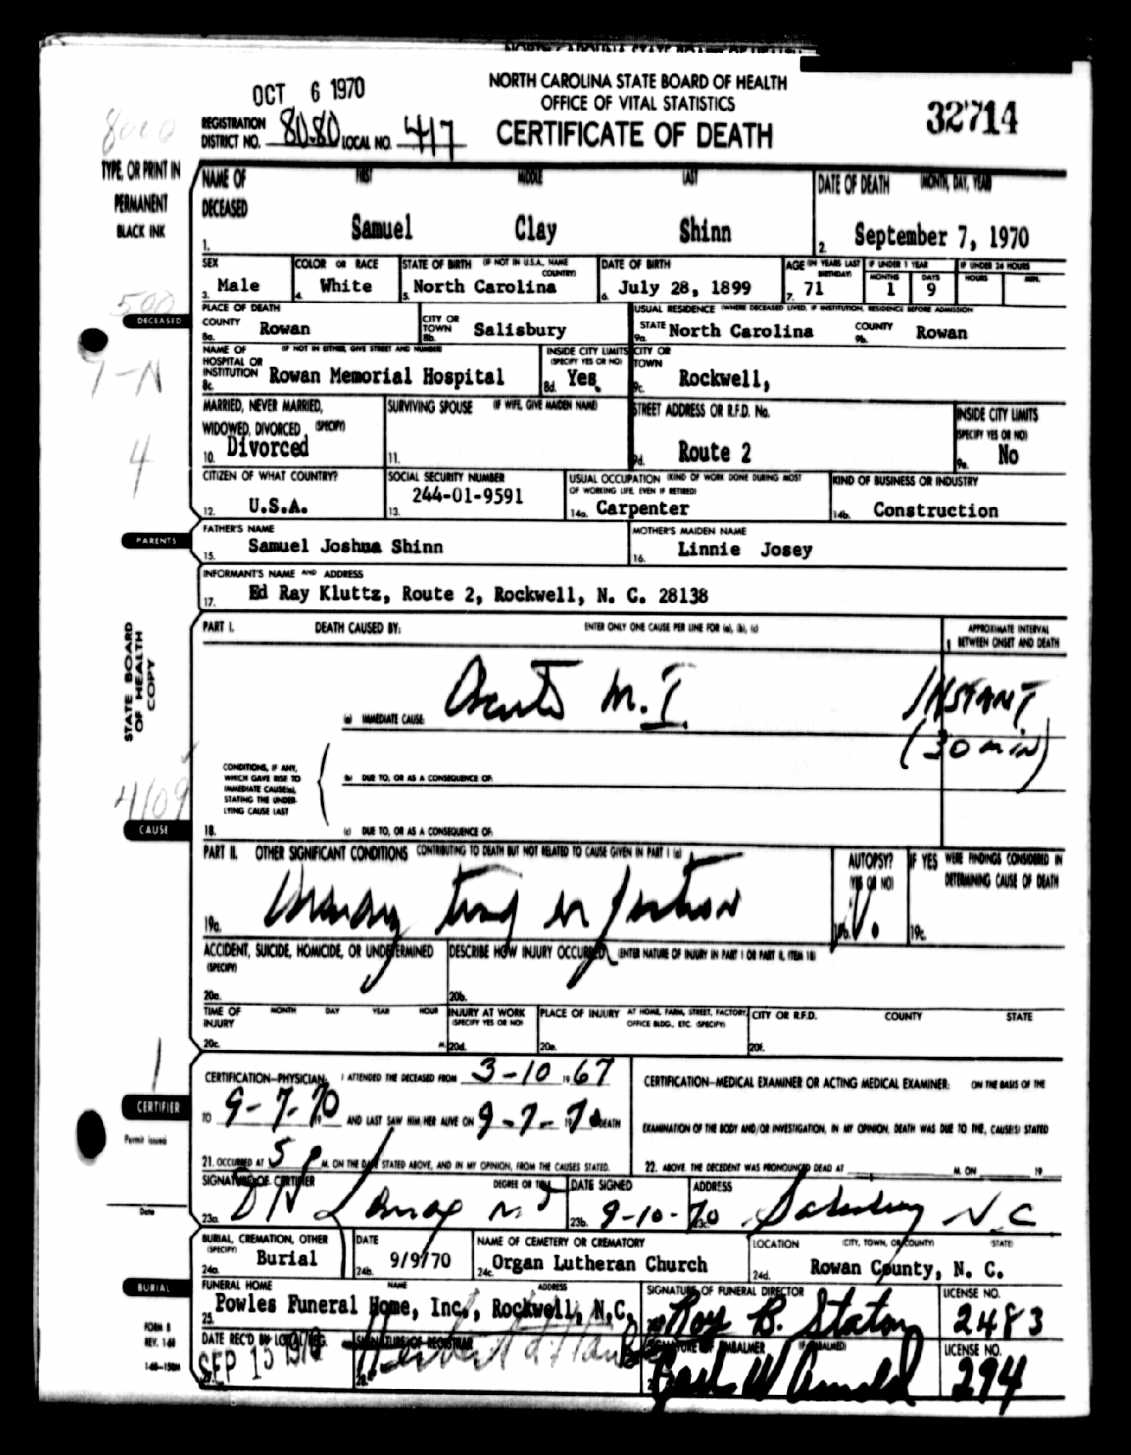 OCT 6 1970
NORTH CAROLINA STATE BOARD OF HEALTH
OFFICE OF VITAL STATISTICS
CERTIFICATE OF DEATH
32714
8000
REGISTRATION DISTRICT NO. 80.80 LOCAL NO. 417
TYPE, OR PRINT IN
PERMANENT
BLACK INK
NAME OF DECEASED FIRST MIDDLE LAST
1. Samuel Clay Shinn
DATE OF DEATH MONTH, DAY, YEAR
2. September 7, 1970
SEX
3. Male
COLOR OR RACE
4. White
STATE OF BIRTH (IF NOT IN U.S.A., NAME COUNTRY)
5. North Carolina
DATE OF BIRTH
6. July 28, 1899
AGE (IN YEARS LAST BIRTHDAY)
7. 71
IF UNDER 1 YEAR
MONTHS 1 DAYS 9
IF UNDER 24 HOURS
HOURS MIN.
500
DECEASED
9-N
4
PLACE OF DEATH
COUNTY
8a. Rowan
CITY OR TOWN
8b. Salisbury
USUAL RESIDENCE (WHERE DECEASED LIVED, IF INSTITUTION, RESIDENCE BEFORE ADMISSION)
STATE
9a. North Carolina
COUNTY
9b. Rowan
NAME OF HOSPITAL OR INSTITUTION (IF NOT IN EITHER, GIVE STREET AND NUMBER)
8c. Rowan Memorial Hospital
INSIDE CITY LIMITS
(SPECIFY YES OR NO)
8d. Yes
CITY OR TOWN
9c. Rockwell,
MARRIED, NEVER MARRIED,
WIDOWED, DIVORCED (SPECIFY)
10. Divorced
SURVIVING SPOUSE (IF WIFE, GIVE MAIDEN NAME)
11.
STREET ADDRESS OR R.F.D. No.
9d. Route 2
INSIDE CITY LIMITS
(SPECIFY YES OR NO)
9e. No
CITIZEN OF WHAT COUNTRY?
12. U.S.A.
SOCIAL SECURITY NUMBER
13. 244-01-9591
USUAL OCCUPATION (KIND OF WORK DONE DURING MOST OF WORKING LIFE, EVEN IF RETIRED)
14a. Carpenter
KIND OF BUSINESS OR INDUSTRY
14b. Construction
PARENTS
FATHER'S NAME
15. Samuel Joshua Shinn
MOTHER'S MAIDEN NAME
16. Linnie Josey
INFORMANT'S NAME AND ADDRESS
17. Ed Ray Kluttz, Route 2, Rockwell, N. C. 28138
STATE BOARD
OF HEALTH
COPY
PART I. DEATH CAUSED BY: ENTER ONLY ONE CAUSE PER LINE FOR (a), (b), (c)
APPROXIMATE INTERVAL
BETWEEN ONSET AND DEATH
(a) IMMEDIATE CAUSE: Acute M.I. INSTANT
(30 min)
CONDITIONS, IF ANY,
WHICH GAVE RISE TO
IMMEDIATE CAUSE(a),
STATING THE UNDER-
LYING CAUSE LAST
(b) DUE TO, OR AS A CONSEQUENCE OF:
18. (c) DUE TO, OR AS A CONSEQUENCE OF:
4109
CAUSE
PART II. OTHER SIGNIFICANT CONDITIONS CONTRIBUTING TO DEATH BUT NOT RELATED TO CAUSE GIVEN IN PART I (a)
19a. infection
AUTOPSY?
(YES OR NO)
19b. N.
IF YES WERE FINDINGS CONSIDERED IN
DETERMINING CAUSE OF DEATH
19c.
ACCIDENT, SUICIDE, HOMICIDE, OR UNDETERMINED
(SPECIFY)
20a.
DESCRIBE HOW INJURY OCCURRED (ENTER NATURE OF INJURY IN PART I OR PART II, ITEM 18)
20b.
TIME OF INJURY MONTH DAY YEAR HOUR
20c. M.
INJURY AT WORK
(SPECIFY YES OR NO)
20d.
PLACE OF INJURY AT HOME, FARM, STREET, FACTORY, OFFICE BLDG., ETC. (SPECIFY)
20e.
CITY OR R.F.D. COUNTY STATE
20f.
1
CERTIFIER
Permit issued
Date
CERTIFICATION—PHYSICIAN: I ATTENDED THE DECEASED FROM 3-10 1967
TO 9-7-70 AND LAST SAW HIM/HER ALIVE ON 9-7-1970 DEATH
21. OCCURRED AT 5 P M. ON THE DATE STATED ABOVE, AND IN MY OPINION, FROM THE CAUSES STATED.
CERTIFICATION—MEDICAL EXAMINER OR ACTING MEDICAL EXAMINER: ON THE BASIS OF THE
EXAMINATION OF THE BODY AND/OR INVESTIGATION, IN MY OPINION, DEATH WAS DUE TO THE, CAUSE(S) STATED
22. ABOVE. THE DECEDENT WAS PRONOUNCED DEAD AT M. ON 19
SIGNATURE OF CERTIFIER DEGREE OR TITLE
23a. Lomax MD
DATE SIGNED
23b. 9-10-70
ADDRESS
23c. Salisbury N.C
BURIAL
BURIAL, CREMATION, OTHER
(SPECIFY)
24a. Burial
DATE
24b. 9/9/70
NAME OF CEMETERY OR CREMATORY
24c. Organ Lutheran Church
LOCATION (CITY, TOWN, OR COUNTY) (STATE)
24d. Rowan County, N. C.
FUNERAL HOME NAME ADDRESS
25. Powles Funeral Home, Inc., Rockwell, N.C.
SIGNATURE OF FUNERAL DIRECTOR
Roy B. Staton
LICENSE NO.
2483
FORM 8
REV. 1-68
DATE REC'D BY LOCAL REG.
SEP 15 1970
SIGNATURE OF REGISTRAR
28.
SIGNATURE OF EMBALMER (IF EMBALMED)
LICENSE NO.
294